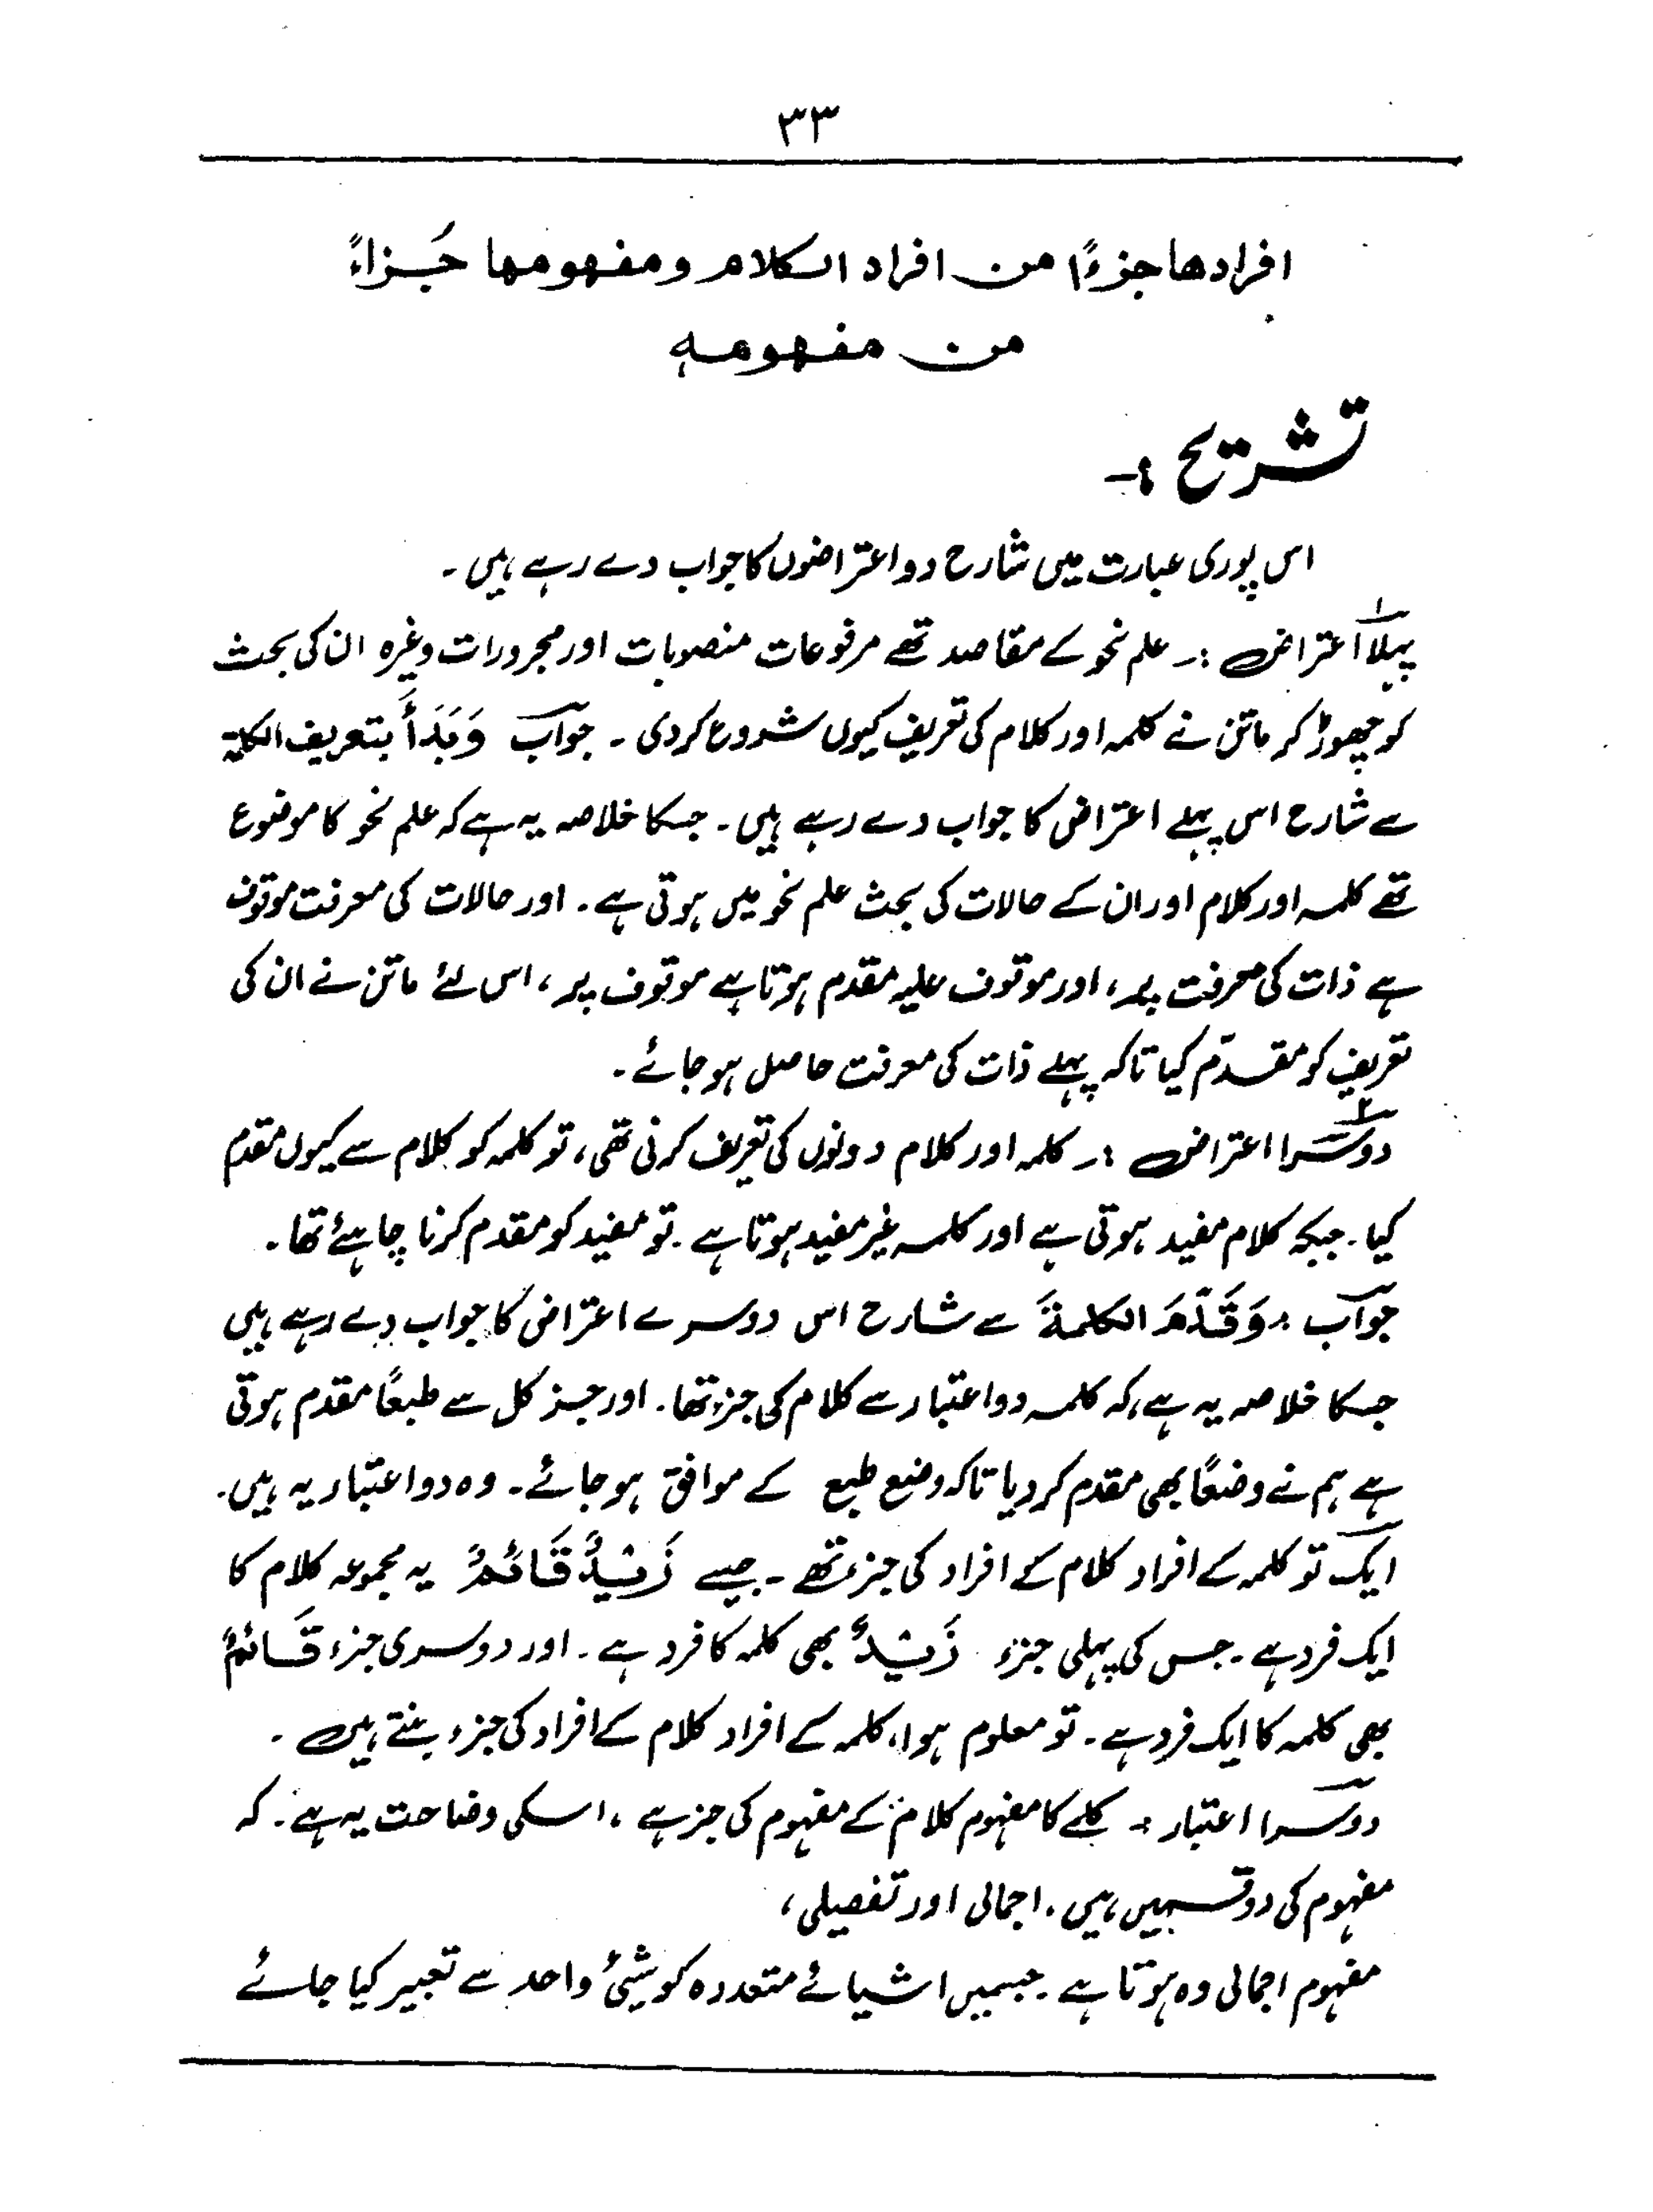 ٣٣
افرادها جزءًا من افراد الكلام ومفهومها جُزاءً
من مفهومه
تشریح :۔
اس پوری عبارت میں شارح دو اعتراضوں کا جواب دے رہے ہیں ۔
پہلا اعتراض :۔ علم نحو کے مقاصد تھے مرفوعات منصوبات اور مجرورات وغیرہ ان کی بحث
کو چھوڑ کر ماتن نے کلمہ اور کلام کی تعریف کیوں شروع کردی ۔ جواب وَبَدَأَ بتعریف الکلمۃ
سے شارح اس پہلے اعتراض کا جواب دے رہے ہیں ۔ جسکا خلاصہ یہ ہے کہ علم نحو کا موضوع
تھے کلمہ اور کلام اور ان کے حالات کی بحث علم نحو میں ہوتی ہے ۔ اور حالات کی معرفت موقوف
ہے ذات کی معرفت پر ، اور موقوف علیہ مقدم ہوتا ہے موقوف پر ، اس لئے ماتن نے ان کی
تعریف کو مقدّم کیا تاکہ پہلے ذات کی معرفت حاصل ہو جائے ۔
دوسرا اعتراض :۔ کلمہ اور کلام دونوں کی تعریف کرنی تھی ، تو کلمہ کو کلام سے کیوں مقدم
کیا ۔ جبکہ کلام مفید ہوتی ہے اور کلمہ غیر مفید ہوتا ہے ۔ تو مفید کو مقدم کرنا چاہئے تھا ۔
جواب : وَقَدَّمَ الکلمةَ سے شارح اس دوسرے اعتراض کا جواب دے رہے ہیں
جسکا خلاصہ یہ ہے ، کہ کلمہ دو اعتبار سے کلام کی جزء تھا ۔ اور جز کل سے طبعًا مقدم ہوتی
ہے ہم نے وضعًا بھی مقدم کر دیا تاکہ وضع طبع کے موافق ہو جائے ۔ وہ دو اعتبار یہ ہیں ۔
ایک تو کلمہ کے افراد کلام کے افراد کی جزء تھے ۔ جیسے زَیْدٌ قَائمٌ یہ مجموعہ کلام کا
ایک فرد ہے ۔ جس کی پہلی جزء زَیْدٌ بھی کلمہ کا فرد ہے ۔ اور دوسری جزء قَائمٌ
بھی کلمہ کا ایک فرد ہے ۔ تو معلوم ہوا ، کلمہ کے افراد کلام کے افراد کی جزء بنتے ہیں ۔
دوسرا اعتبار :۔ کلمے کا مفہوم کلام کے مفہوم کی جز ہے ، اسکی وضاحت یہ ہے ۔ کہ
مفہوم کی دو قسمیں ہیں ۔ اجمالی اور تفصیلی ،
مفہوم اجمالی وہ ہوتا ہے ۔ جسمیں اشیائے متعددہ کو شیئ واحد سے تعبیر کیا جائے